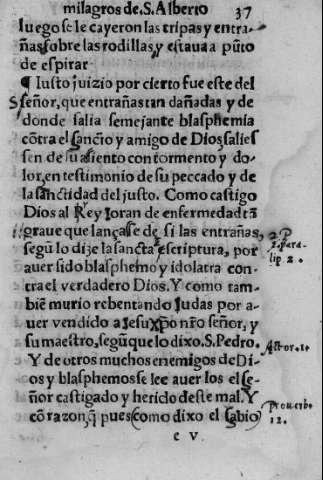 milagros de .S. Alberto 37
luego se le cayeron las tripas y entra-
ñas, sobre las rodillas, y estaua a pũto
de espirar
¶ Iusto juizio por cierto fue este del
señor, que entrañas tan dañadas y de
donde salia semejante blasphemia
cõtra el sancto y amigo de Dios, salies
sen de su asiento con tormento y do-
lor, en testimonio de su peccado y de
la sanctidad del justo. Como castigo
Dios al Rey Ioran de enfermedad tã
graue que lançasse de si las entrañas,
segũ lo dize la sancta escriptura, por
auer sido blasphemo y idolatra con-
tra el verdadero Dios. Y como tam-
biẽ murio rebentando Iudas por a-
uer vendido a Iesu xp̃o nr̃o señor, y
su maestro, segũ que lo dixo .S. Pedro.
Y de otros muchos enemigos de Di-
os y blasphemos se lee auer los el se-
ñor castigado y herido deste mal. Y
cõ razon, q̃ pues como dixo el sabio
2. para-
lip 2.
Actor. 1.
Prouerb.
12.
e v